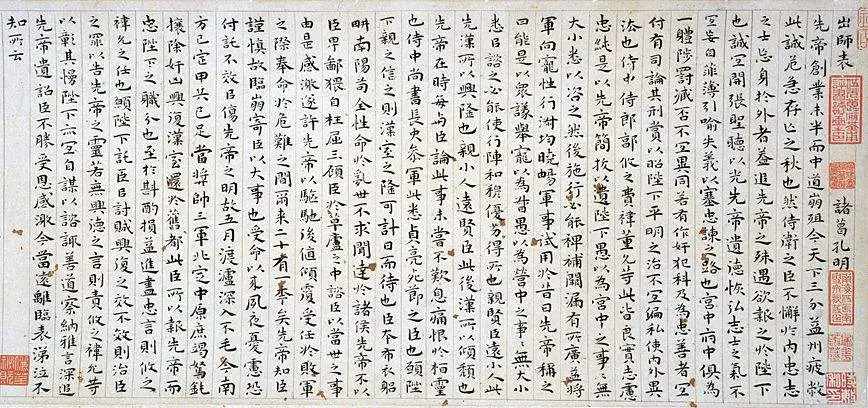 出師表 諸葛孔明
先帝創業未半而中道崩殂今天下三分益州疲敝
此誠危急存亡之秋也然侍衛之臣不懈於內忠志
之士忘身於外者蓋追先帝之殊遇欲報之於陛下
也誠宜開張聖聽以光先帝遺德恢弘志士之氣不
宜妄自菲薄引喻失義以塞忠諫之路也宮中府中俱為
一體陟罰臧否不宜異同若有作奸犯科及為忠善者宜
付有司論其刑賞以昭陛下平明之治不宜偏私使內外異
法也侍中侍郎郭攸之費禕董允等此皆良實志慮
忠純是以先帝簡拔以遺陛下愚以為宮中之事事無
大小悉以咨之然後施行必能裨補闕漏有所廣益將
軍向寵性行淑均曉暢軍事試用於昔日先帝稱之
曰能是以眾議舉寵以為督愚以為營中之事事無大小
悉臣諮之必能使行陣和穆優劣得所也親賢臣遠小人此
先漢所以興隆也親小人遠賢臣此後漢所以傾頹也
先帝在時每與臣論此事未嘗不歎息痛恨於桓靈
也侍中尚書長史參軍此悉貞亮死節之臣也願陛
下親之信之則漢室之隆可計日而待也臣本布衣躬
耕南陽苟全性命於亂世不求聞達於諸侯先帝不以
臣卑鄙猥自枉屈三顧臣於草廬之中諮臣以當世之事
由是感激遂許先帝以驅馳後值傾覆受任於敗軍
之際奉命於危難之間爾來二十有一年矣先帝知臣
謹慎故臨崩寄臣以大事也受命以來夙夜憂慮恐
付託不效臣傷先帝之明故五月渡瀘深入不毛今南
方已定甲兵已足當獎帥三軍北定中原庶竭駑鈍
攘除奸凶興復漢室還於舊都此臣所以報先帝而
忠陛下之職分也至於斟酌損益進盡忠言則攸之
禕允之任也願陛下託臣以討賊興復之效不效則治臣
之罪以告先帝之靈若無興德之言則責攸之禕允等
以彰其慢陛下亦宜自謀以諮諏善道察納雅言深追
先帝遺詔臣不勝受恩感激今當遠離臨表涕泣不
知所云